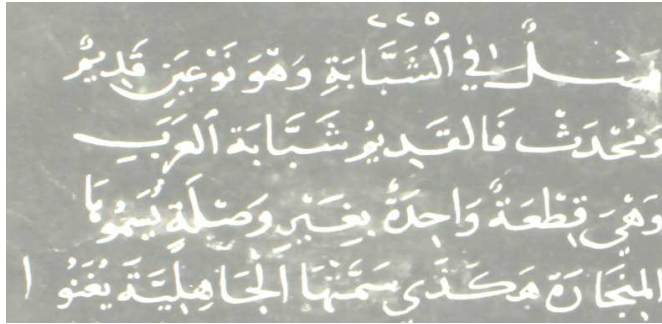 ٢٢٥
فصلٌ في ٱلشَبَّابَةِ وَهْوَ نَوْعَينِ قَدِيمٌ
وَمُحْدَثْ فَالقَدِيمُ شَبَّابَة ٱلعَرَبِ
وَهْيَ قِطْعَةٌ وَاحِدَةٌ بِغَيْرِ وَصْلَةٍ يُسَمُّوهَا
المِنْجَارَة هَكَذَى سَمَّتْهَا الجَاهِلِيَّةَ يُغَنُّوا